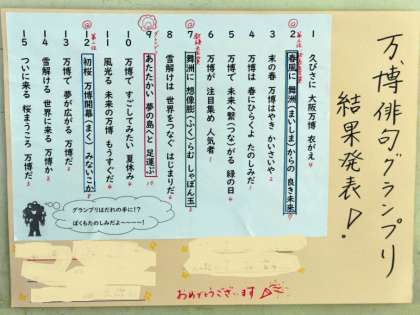 万博俳句グランプリ
結果発表！
1 久びさに 大阪万博 衣がえ
2 春風に 舞洲(まいしま)からの 良き未来
3 末の春 万博はやき かいさいや
4 万博は 春にひらくよ たのしみだ
5 万博で 未来へ繋(つな)がる 緑の日
6 万博が 注目集め 人気者
7 舞洲に 想像膨(ふく)らむ しゃぼん玉
8 雪解けは 世界をつなぐ はじまりだ
9 あたたかい 夢の島へと 足運ぶ
10 万博で すごしてみたい 夏休み
11 風光る 未来の万博 もうすぐだ
12 初桜 万博開幕(まく) みないこか
13 万博で 夢が広がる 万博だ
14 雪解ける 世界に来る 万博か
15 ついに来る 桜まうころ 万博だ
グランプリはだれの手に!?
ぼくもたのしみだよ～～～～!
おめでとうございます